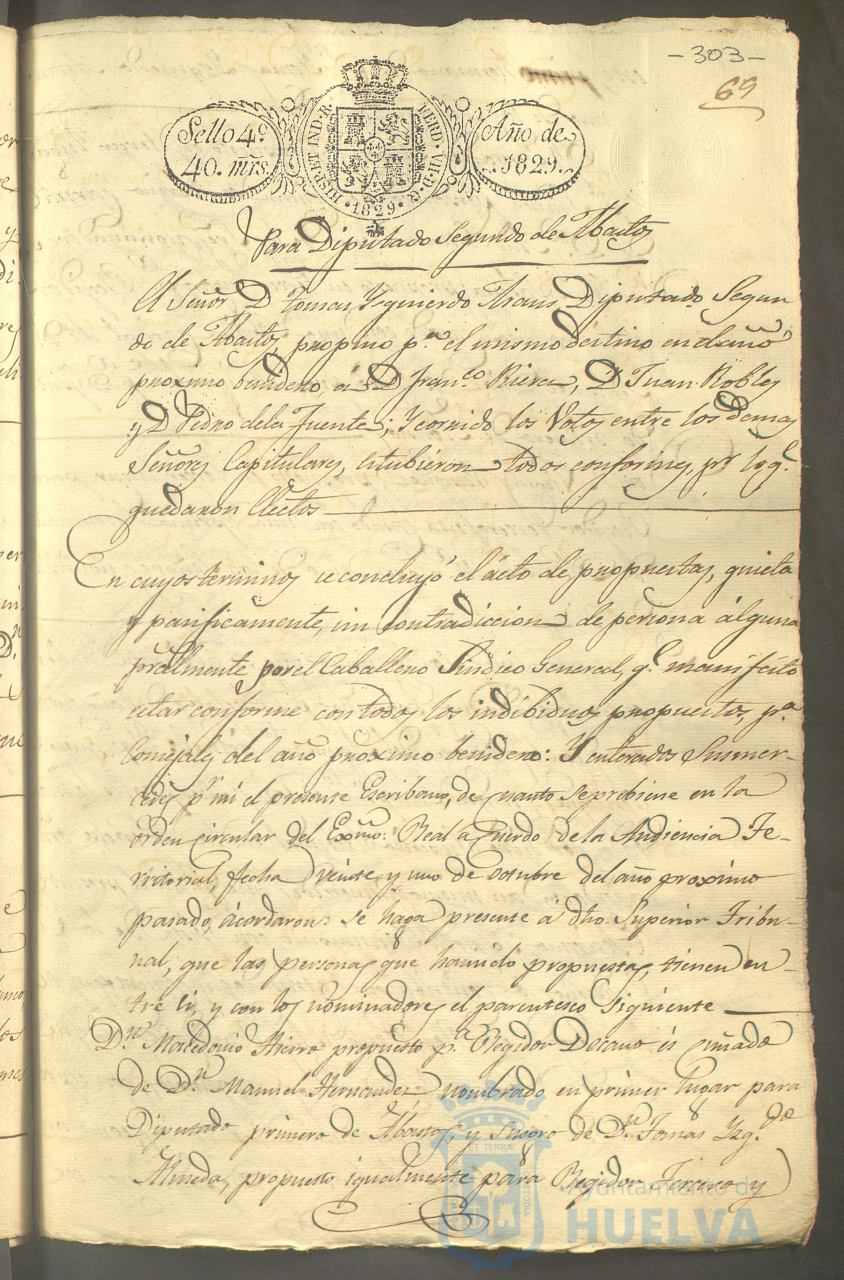 -303-
69
Sello 4º
40. mrs.
HISP. ET IND. R. FERD. VII. D. G.
·1829·
Año de
1829.
Para Diputado Segundo de Abastos
El Señor D Tomas Yzquierdo Diputado Segun
do de Abastos, propuso pª el mismo destino en el año
proximo benidero, á D Franco Riera, D Juan Robles
y D Pedro dela Fuente; Y corrido los Votos entre los demas
Señores Capitulares, estubieron todos conformes, pr lo q.
quedaron Electos
En cuyos terminos se concluyó el acto de propuestas, quieta
y pacificamente, sin contradiccion de persona alguna
pralmente por el Caballero Sindico General, q. manifestó
estar conforme con todos los indibiduos propuestos, pª
Consejales del año proximo benidero: Y enterados Susmer-
cedes pr mi el presente Escribano, de cuanto se prebiene en la
orden circular del Exmo: Real acuerdo de la Audiencia Te-
rritorial, fecha veinte y uno de octubre del año proximo
pasado, acordaron: se haga presente á dho Superior Tribu-
nal, que las personas que han sido propuestas, tienen en-
tre si, y con los nominadores el parentesco siguiente
Dn. Macedonio Hierro propuesto pª Regidor Decano es cuñado
de Dn. Manuel Hernandez nombrado en primer lugar para
Diputado primero de Abastos, y Suegro de Dn. Tomas Yzq.do
propuesto igualmente para Regidor Tercero y
ET TERRÆ
Ayuntamiento de
HUELVA